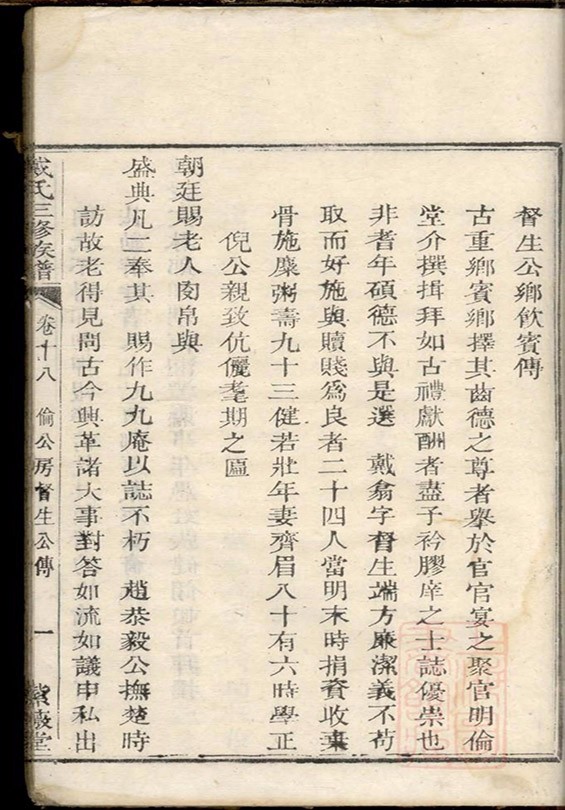 督生公鄉飲賓傳
古重鄉賓鄉擇其齒德之尊者舉於官官宴之聚官明倫
堂介撰揖拜如古禮獻酬者盡子衿膠庠之士誌優崇也
非耆年碩德不與是選　戴翁字督生端方廉潔義不苟
取而好施與贖賤爲良者二十四人當明末時捐資收棄
骨施糜粥壽九十三健若壯年妻齊眉八十有六時學正
倪公親致伉儷耄期之匾
朝廷賜老人肉帛與
盛典凡二奉其　賜作九九庵以誌不朽　趙恭毅公撫楚時
訪故老得見問古今興革諸大事對答如流如議申私出
戴氏三修族譜　卷十八　倫公房督生公傳　一　紫薇堂